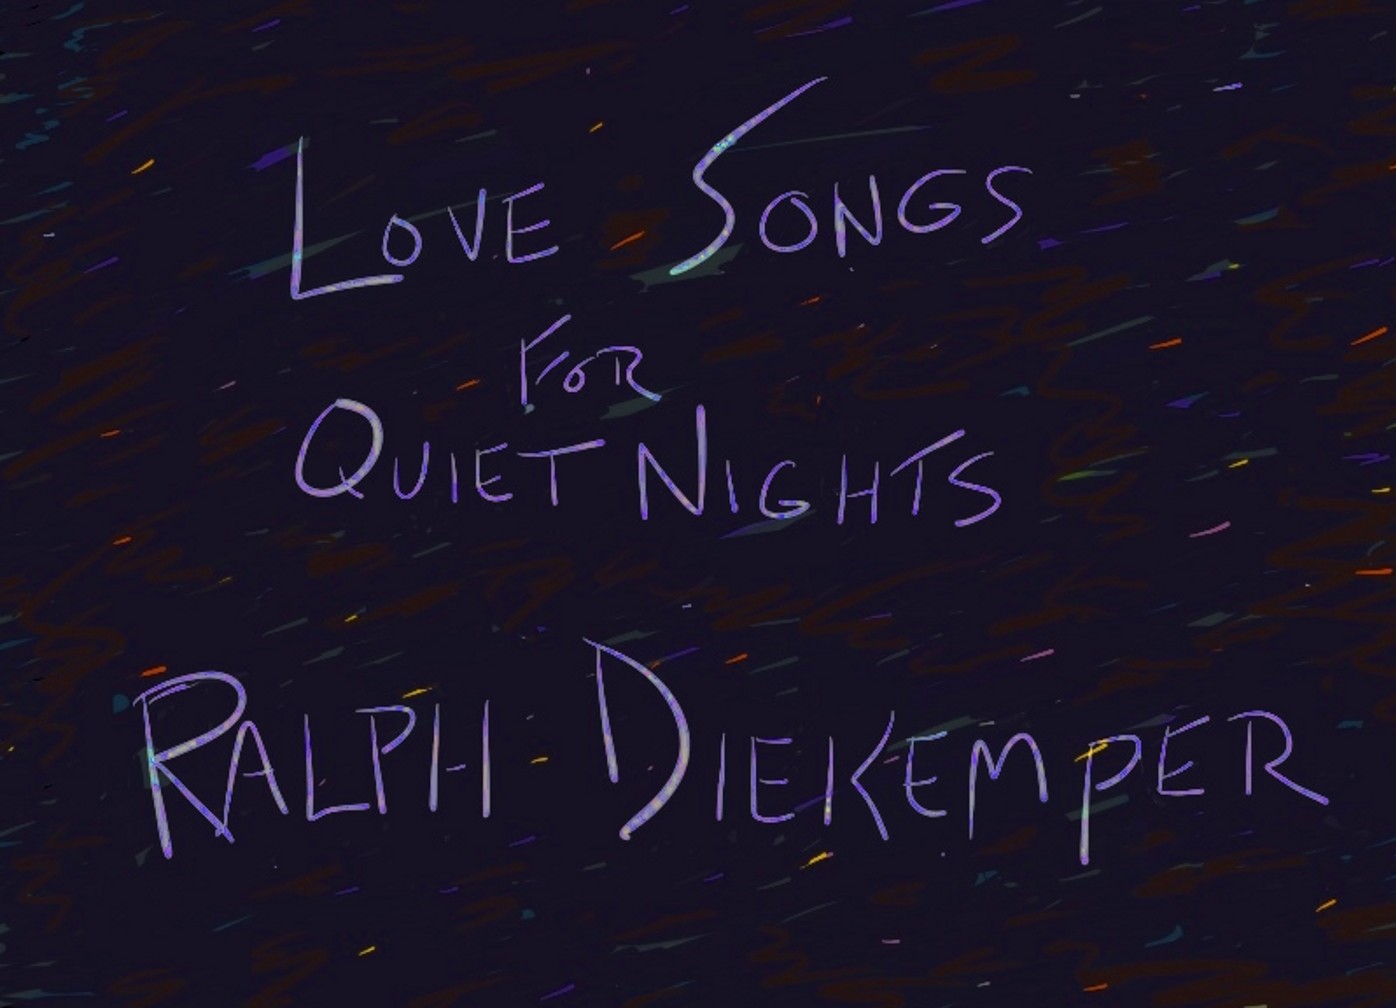 Love Songs
For
Quiet Nights
Ralph Diekemper